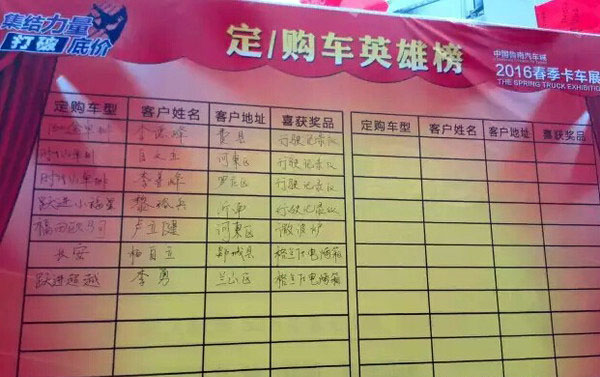 集结力量
打破底价
定/购车英雄榜
中国鲁南汽车城
2016春季卡车展
THE SPRING TRUCK EXHIBITION
定购车型 客户姓名 客户地址 喜获奖品 定购车型 客户姓名 客户地址 喜获奖品
费县 行驶记录仪
河东区 行驶记录仪
李善峰 罗庄区 行驶记录仪
跃进小福星 黎振兵 沂南 行驶记录仪
福田欧马可 卢立健 河东区 微波炉
长安 杨自立 郯城县 电冰箱
跃进超越 李勇 兰山区 电冰箱